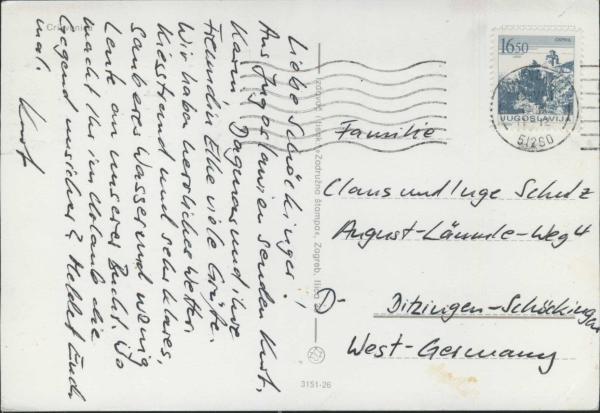 Crikvenica
Liebe Schöckinger!
Aus Jugoslawien senden Kurt,
Karin, Dagmar und ihre
Freundin Elke viele Grüße.
Wir haben herrliches Wetter.
Kiesstrand und sehr klares,
sauberes Wasser und wenig
Leute an unserer Bucht. Wo
macht Ihr im Urlaub die
Gegend unsicher? Meldet Euch
mal.
Kurt
Zadružna štampa, Zagreb, Ilica
3151-26
16.50
JUGOSLAVIJA
51260
Familie
Claus und Inge Scholz
August-Lämmle-Weg 4
D-
Ditzingen-Schöckingen
West-Germany